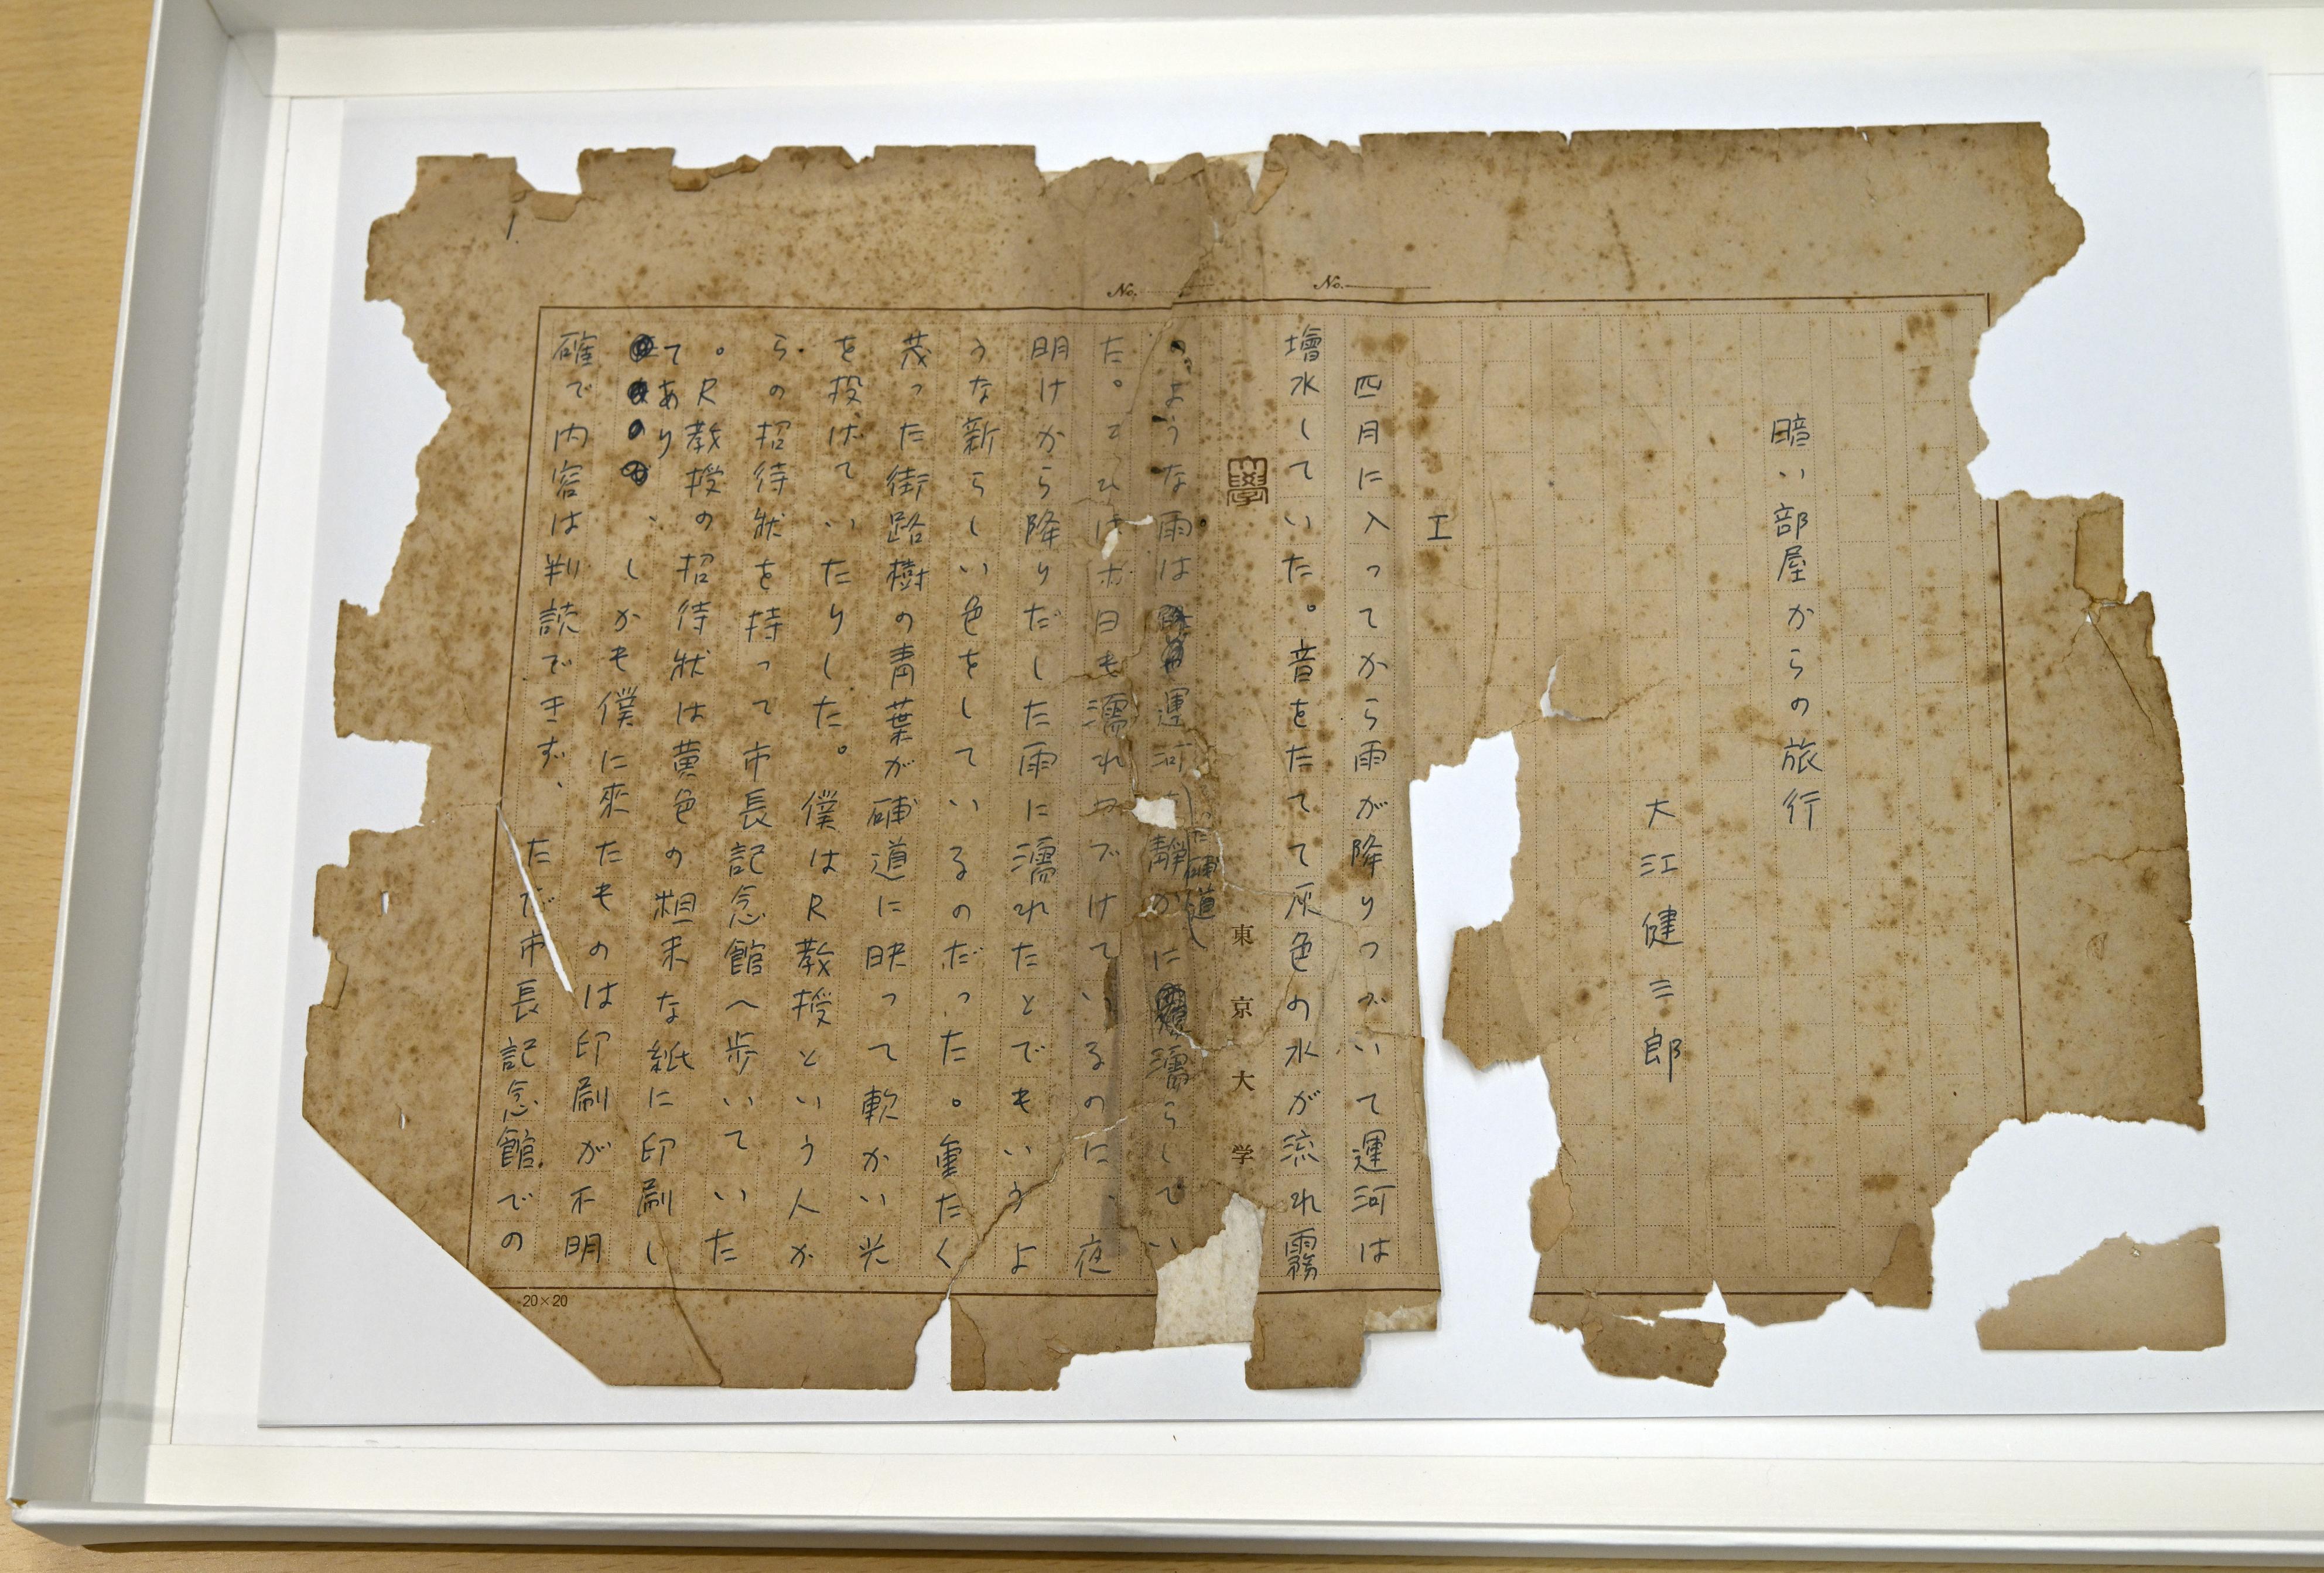 暗い部屋からの旅行
大江健三郎
I
四月に入ってから雨が降りつづいて運河は
増水していた。音をたてて灰色の水が流れ霧
東京大学
のような雨は運河 静かに濡らしてい
た。 は 日も濡れつづけているのに、夜
明けから降りだした雨に濡れたとでもいうよ
うな新らしい色をしているのだった。重たく
茂った街路樹の青葉が舗道に映って軟かい光
を投げていたりした。僕はR教授という人か
らの招待状を持って市長記念館へ歩いていた
。R教授の招待状は黄色の粗末な紙に印刷し
てあり、しかも僕に來たものは印刷が不明
確で内容は判読できず、ただ市長記念館での
No.
No.
1
20×20